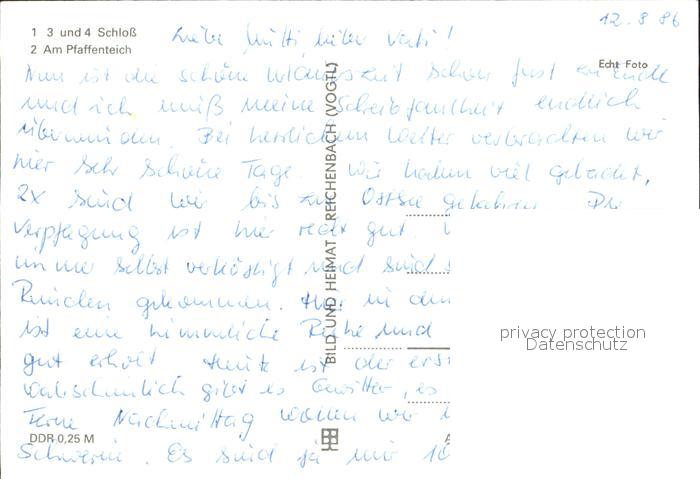 1 3 und 4 Schloß
2 Am Pfaffenteich
12.8 86
Echt Foto
Liebe Mutti, lieber Vati!
Nun ist die schöne Urlaubszeit schon fast zu Ende
und ich muß meine Schreibfaulheit endlich
überwinden. Bei herrlichem Wetter verbrachten wir
hier sehr schöne Tage. Wir haben viel gebadet,
2x sind wir bis zur Ostsee gefahren. Die
Verpflegung ist hier recht gut.
immer selbst verköstigt und sind
Runden gekommen. Hier in den
ist eine himmlische Ruhe und
gut erholt. Heute ist der erste
wahrscheinlich gibt es Gewitter, es
Ferne Nachmittag wollen wir
Schwerin. Es sind ja nur 10
BILD UND HEIMAT REICHENBACH (VOGTL)
DDR 0,25 M
privacy protection
Datenschutz